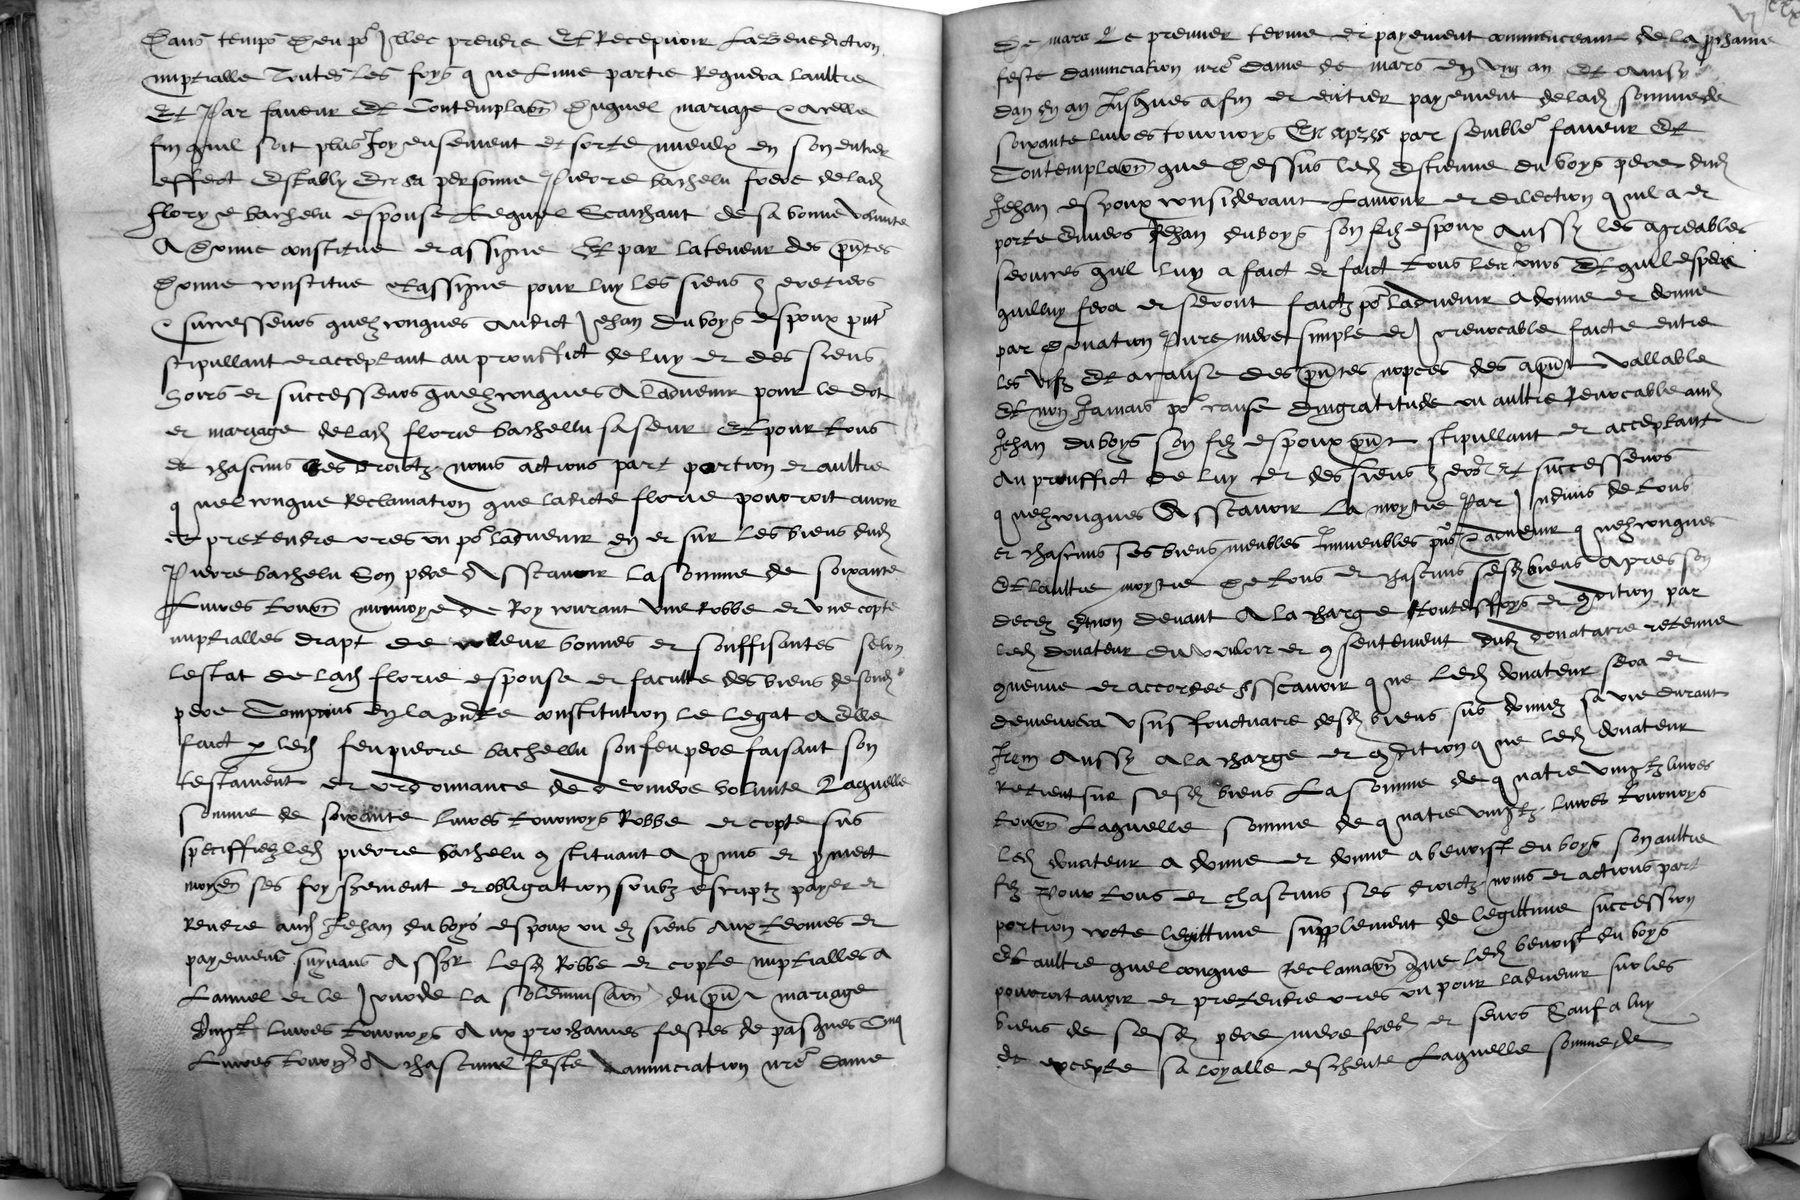 Dans temps deu po[ur] illec prendre Et Recepvoir La Benediction
nuptialle Toutes les foys que L'une partie Requerra laultre
Et Par faveur Et Contemplaon duquel mariage & a celle
fin quil soit plus Joyeusement et sorte mieulx en son entier
effect Estably En sa personne Pierre bachelu frere de lad
florye bachelu espouse Lequel Scaichant de sa bonne volunte
A Donne constitue et assigne Et par la teneur des pntes
Donne constitue & assigne pour luy les siens heretiers
& successeurs quelzconques Audict Jehan du boys espoux pnt
stipullant et acceptant au prouffict de luy et des siens
hoirs et successeurs quelzconques A ladvenir pour le dot
et mariage de lad florie bachellu sa seur Et pour tous
et chascuns ses droictz noms actions part portion et aultre
quelconque Reclamation que ladicte florie pouroit avoir
et pretendre ores ou po ladvenir en et sur les biens dud
Pierre bachelu Son pere Asscavoir la somme de soixante
Livres tourn monnoye de Roy courant Une Robbe et une cotte
nuptialles drapt de couleur bonnes et souffisantes selon
lestat de lad florie espouse et faculte des biens de sond
pere Comprins en la pnte constitution le legat A elle
faict p led feu pierre bachellu son feu pere faisant son
testament et ordonnance de derniere volunte Laquelle
somme de soixante livres tournoys Robbe et cotte sus
speciffiez led pierre bachelu constituant A promis et promect
moyen ses foy serement et obligation soubz escriptz payer et
Rendre aud Jehan du boys espoux ou es siens aux termes et
payemens suyvans Asscr lesd Robbe et cotte nuptialles a
Lannel et le Jour de la solemnisaon du pnt mariage
Vingt livres tournoys Aux prochaines festes de pasques Cinq
Livres tourn A chascune feste dannunciation nre Dame
De mars Le premier terme et payement commenceant de la pchaine
feste dannunciation nre dame de mars en ung an Et Ainsy
dan en an Jusques a fin et entier payement de lad somme de
soixante livres tournoys Et apres par semble faveur Et
Contemplaon que Dessus led Estienne du boys pere dud
Jehan espoux considerant Lamour et dilection quil a et
porte envers Jehan du boys son filz espoux Aussy les agreables
services quil luy a faict et faict tous les Jours Et quil espere
quil luy fera et seront faictz po ladvenir a donne et donne
par Donation Pure mere simple et Irrevocable faicte entre
les vifz Et a cause des pntes nopces des apnt vallable
Et non Jamais po cause dingratitude ou aultre Revocable aud
Jehan du boys son filz espoux pnt stipullant et acceptant
Au prouffict de luy et des siens hers et successeurs
quelzconques Asscavoir La moytie Par Indivis de tous
et chascuns ses biens meubles Immeubles pns & advenir quelzconques
Et laultre moytie De tous et chascuns sesd biens Apres son
decez et non devant A la charge toutesfoys et condition par
led donateur du vouloir et consentement dud donataire retenue
convenue et accordee Asscavoir que Led donateur sera et
demeurera Usuffructuaire desd biens sus donnez sa vie durant
Item Aussy a la charge et condition que led donateur
Retient sur sesd biens La somme de quatre vingtz livres
tourn Laquelle somme de quatre vingtz livres tournoys
led donateur a donne et donne a benoist du boys son aultre
filz Pour tous et chascuns ses droictz noms et actions part
portion cote legittime supplement de legittime succession
Et aultre quelconque Reclamaon que led benoist du boys
pouroit avoir et pretendre ores ou pour ladvenir sur les
biens de sesd pere mere freres et seurs Sauf a luy
et excepte sa loyalle escheute Laquelle somme de